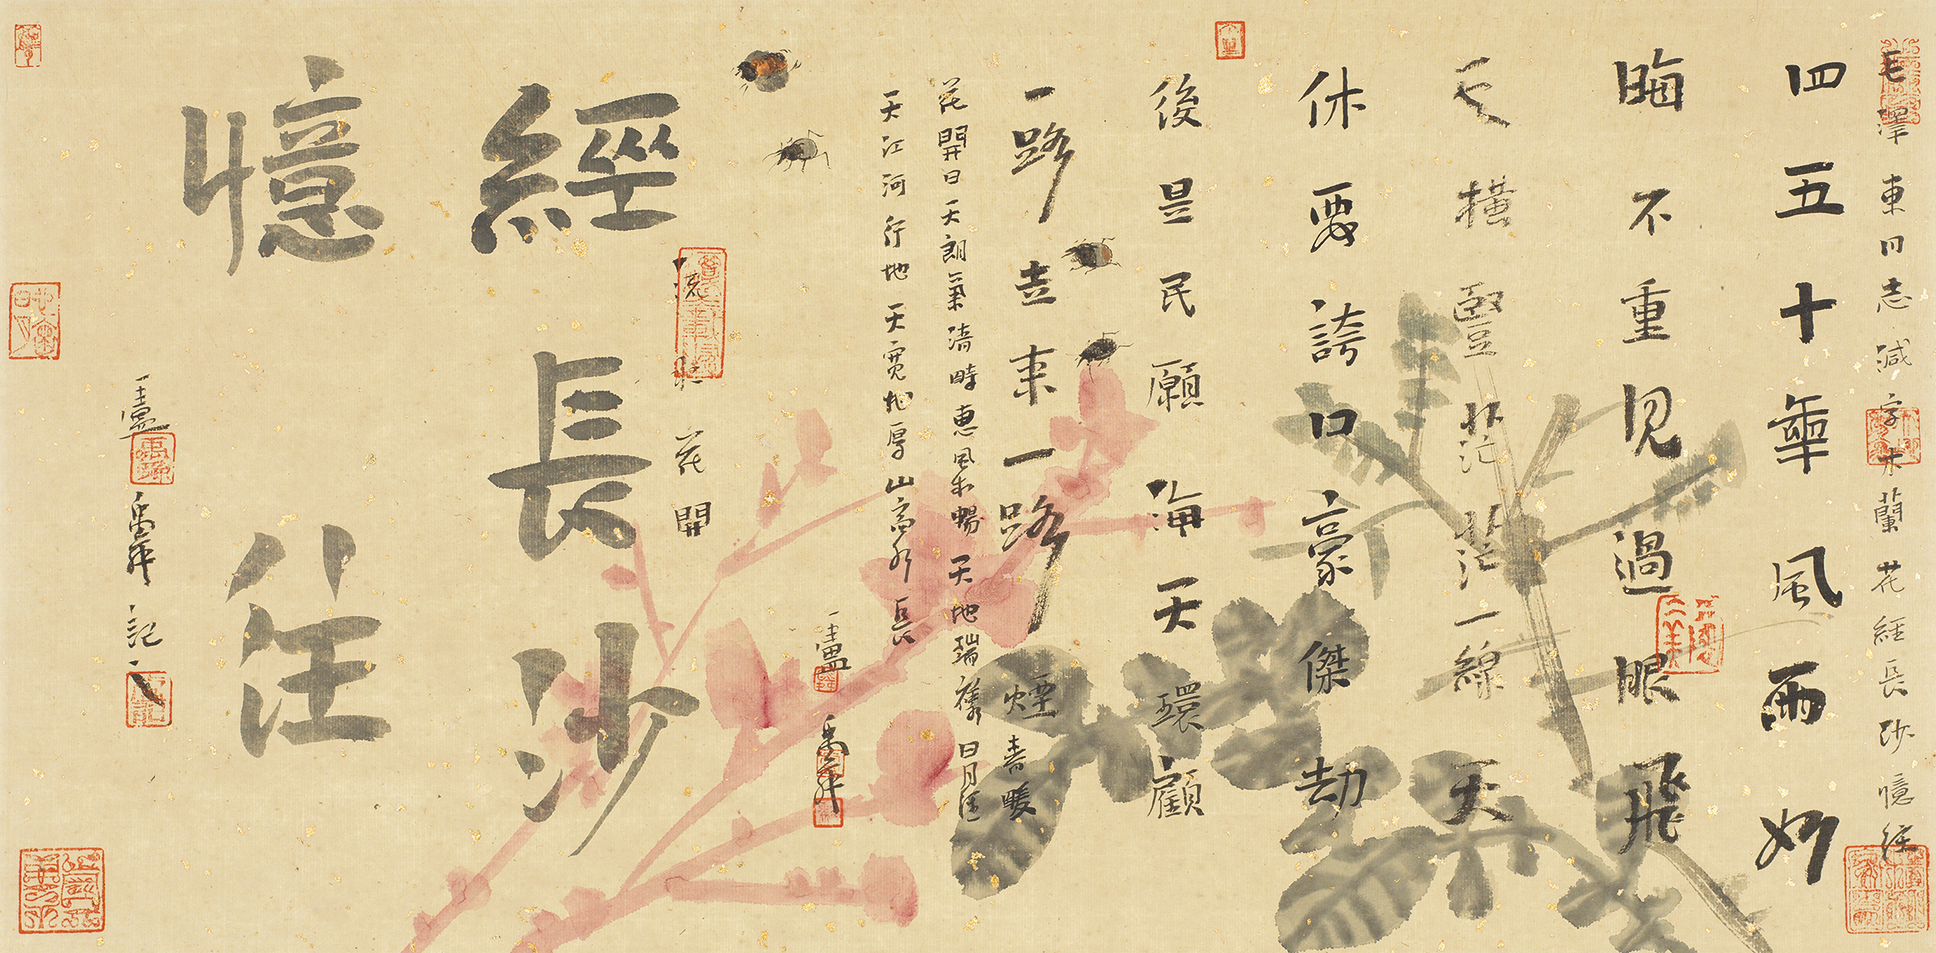 毛澤東同志減字木蘭花經長沙憶往
四五十華風雨如
晦不重見過眼飛
云橫豎茫茫一線天
休要誇口豪傑劫
後是民願海天環顧
一路走来一路煙春暖
花開日天朗氣清時惠風和暢天地瑞祥日月經
天江河行地天寬地厚山高水長
盧禹舜
花開
經長沙
憶往
盧禹舜記之